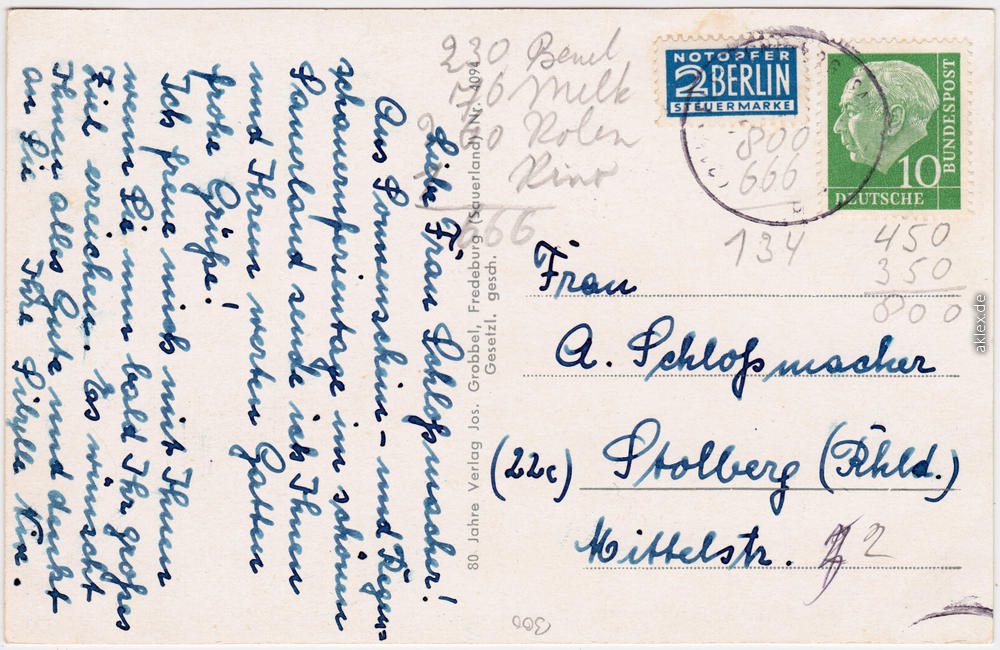 Liebe Frau Schloßmacher!
Aus Sonnenschein- und Regen-
schauerferientage im schönen
Sauerland sende ich Ihnen
und Ihrem werten Gatten
frohe Grüße!
Ich freue mich mit Ihnen
wenn Sie nun bald Ihr großes
Ziel erreichen. Es wünscht
Ihnen alles Gute und denkt
an Sie Ihre
80 Jahre Verlag Jos. Grobbel, Fredeburg (Sauerland) Nr. 4094
Gesetzl. gesch.
230
76 Melk
60 Kolen
Kino
666
NOTOPFER
2 BERLIN
STEUERMARKE
10
DEUTSCHE
BUNDESPOST
800
666
134
450
350
800
Frau
A. Schloßmacher
(22c) Stolberg (Rhld.)
Mittelstr. 2
300
aklex.de